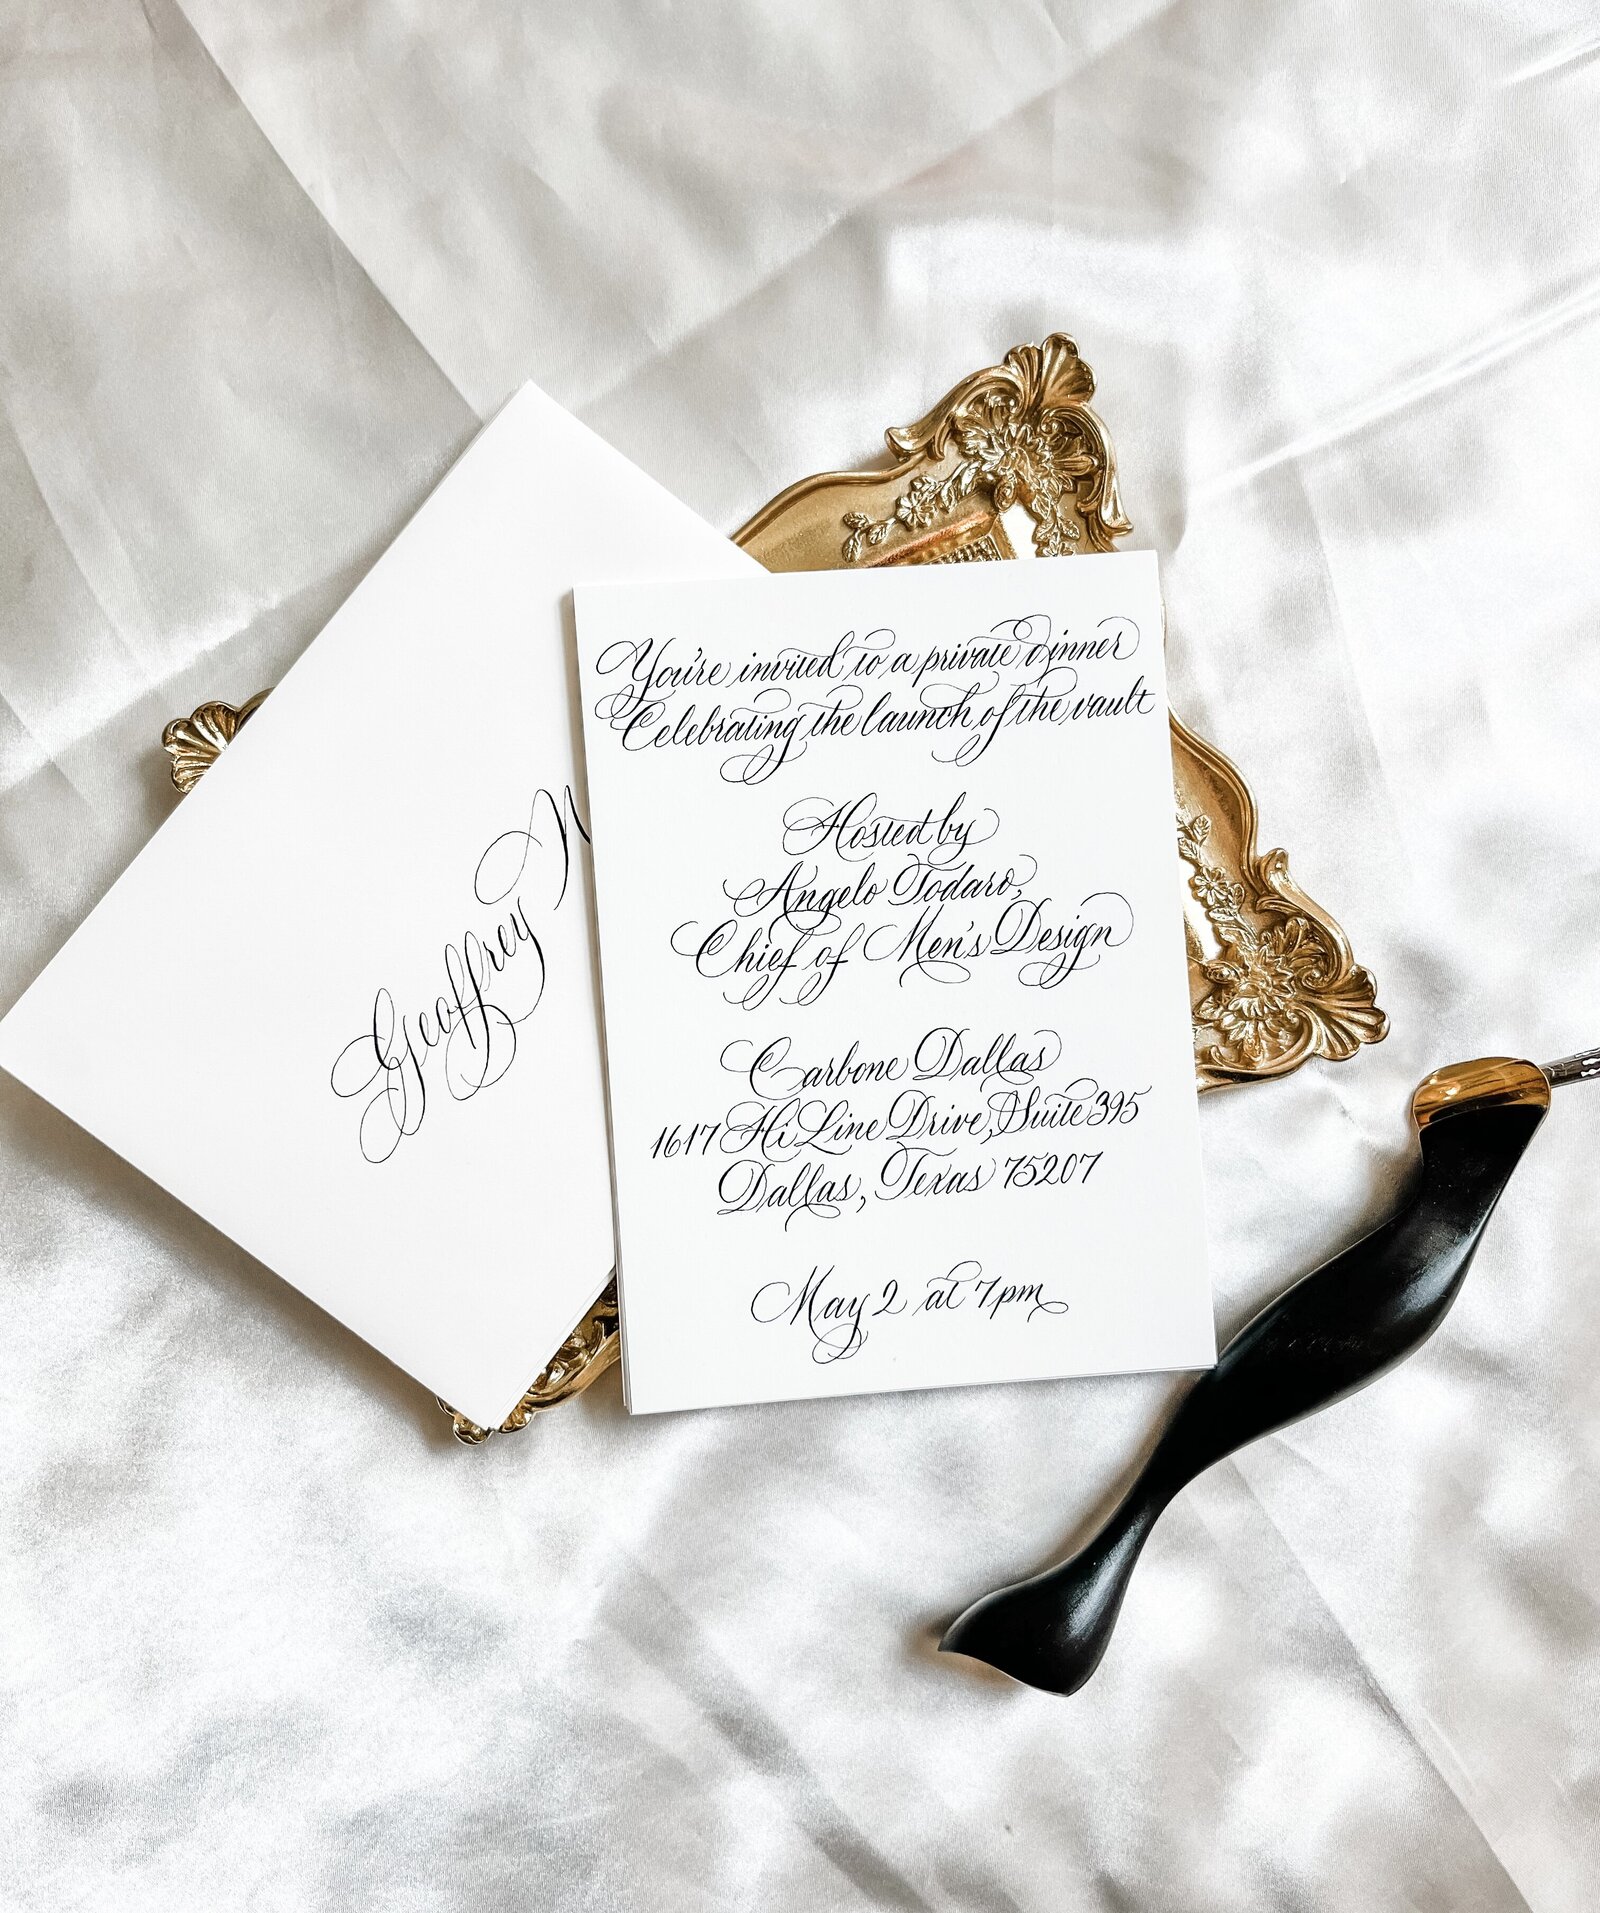 Geoffrey
You're invited to a private dinner
Celebrating the launch of the vault
Hosted by
Angelo Todaro,
Chief of Men's Design
Carbone Dallas
1617 Hi Line Drive, Suite 395
Dallas, Texas 75207
May 2 at 7pm